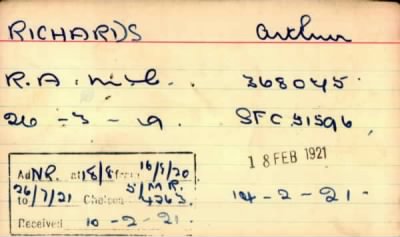 RICHARDS Arthur
R.A. 368045
26-3-19 SFC 51596
18 FEB 1921
Ad NR. at 18/8 from 16/8/20
26/7/21 5/M.R.
to Chelsea 4263 14-2-21
Received 10-2-21